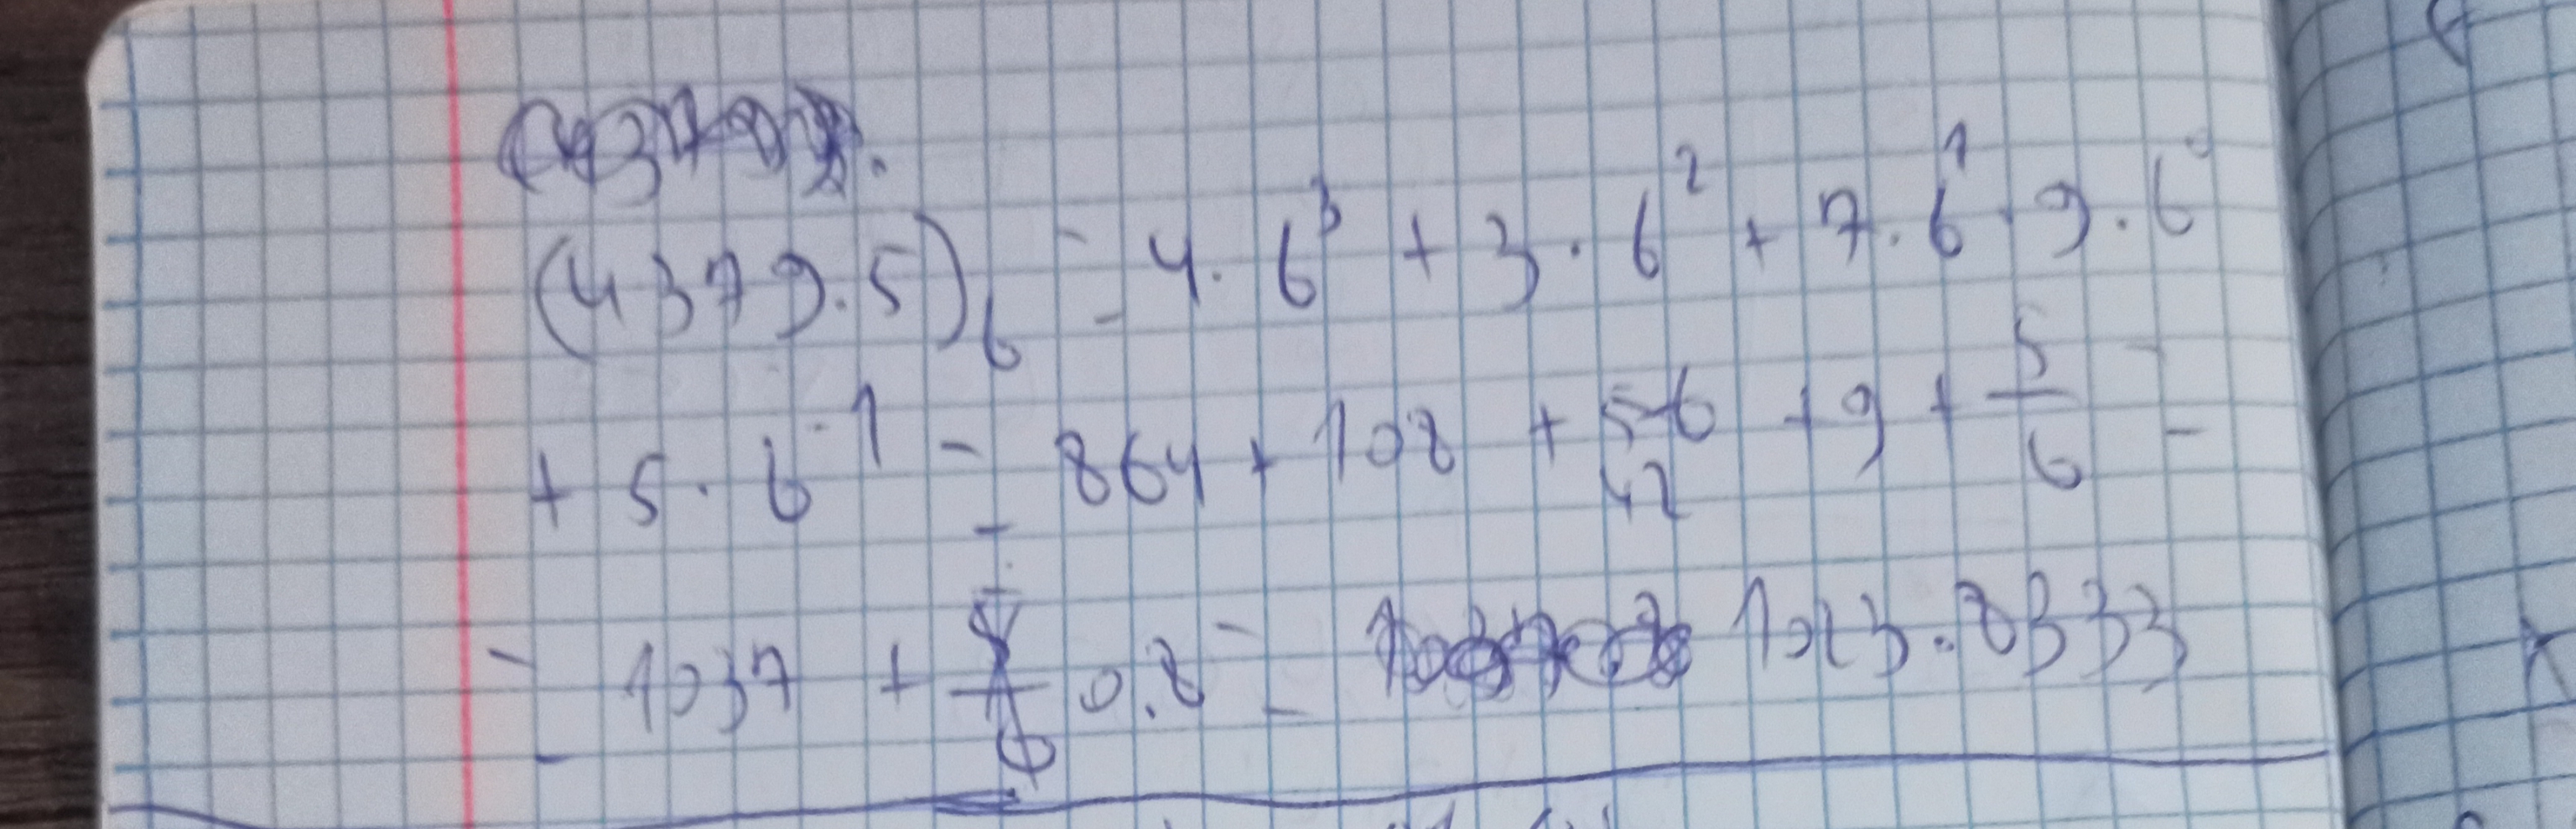 (4379.5)₆ = 4 · 6³ + 3 · 6² + 7 · 6¹ · 9 · 6⁰
+ 5 · 6⁻¹ = 864 + 108 + 56 + 9 + 5/6 =
42
= 1037 + 0.8 = 1023.8333